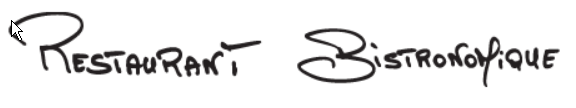 Restaurant Bistronomique